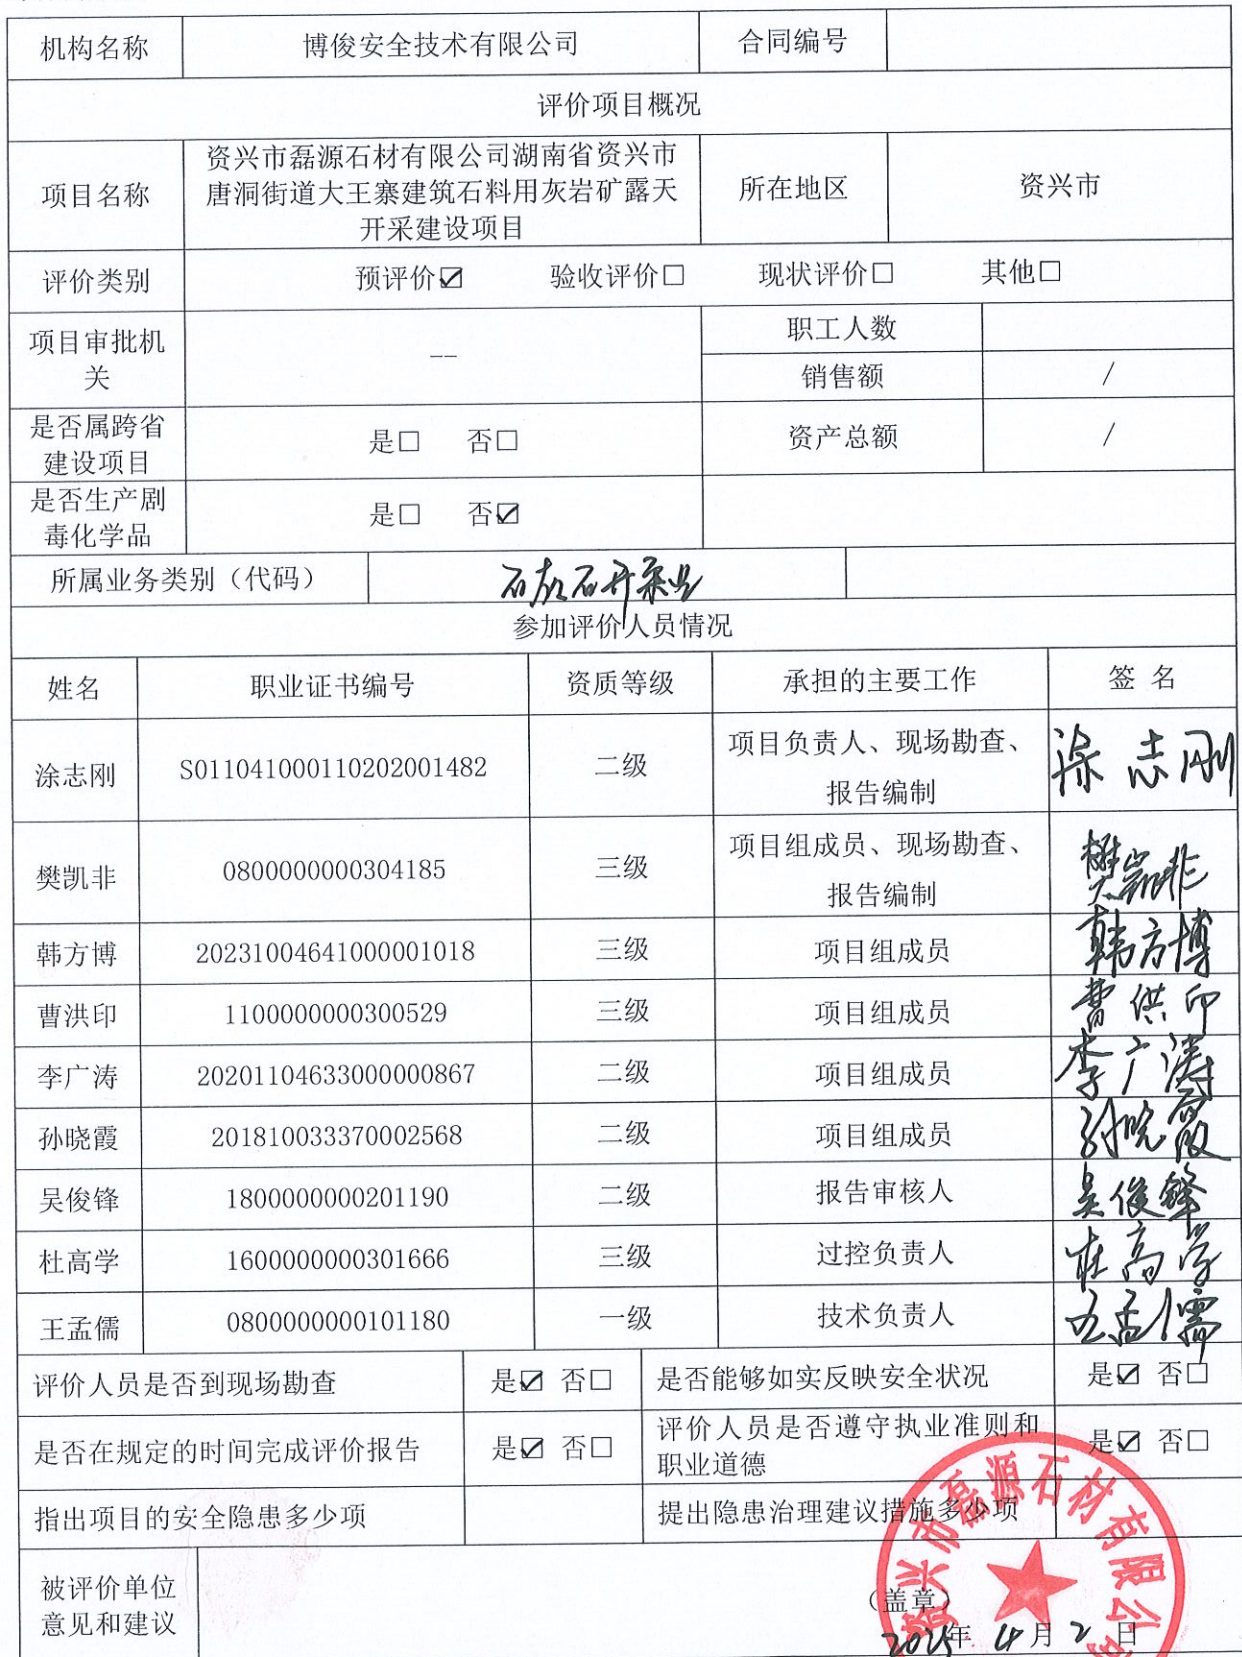 机构名称 博俊安全技术有限公司 合同编号
评价项目概况
项目名称 资兴市磊源石材有限公司湖南省资兴市
唐洞街道大王寨建筑石料用灰岩矿露天
开采建设项目 所在地区 资兴市
评价类别 预评价☑ 验收评价□ 现状评价□ 其他□
项目审批机
关 -- 职工人数
销售额 /
是否属跨省
建设项目 是□ 否□ 资产总额 /
是否生产剧
毒化学品 是□ 否☑
所属业务类别（代码） 石灰石开采业
参加评价人员情况
姓名 职业证书编号 资质等级 承担的主要工作 签 名
涂志刚 S011041000110202001482 二级 项目负责人、现场勘查、
报告编制 涂志刚
樊凯非 0800000000304185 三级 项目组成员、现场勘查、
报告编制 樊凯非
韩方博 20231004641000001018 三级 项目组成员 韩方博
曹洪印 1100000000300529 三级 项目组成员 曹洪印
李广涛 20201104633000000867 二级 项目组成员 李广涛
孙晓霞 201810033370002568 二级 项目组成员 孙晓霞
吴俊锋 1800000000201190 二级 报告审核人 吴俊锋
杜高学 1600000000301666 三级 过控负责人 杜高学
王孟儒 0800000000101180 一级 技术负责人 王孟儒
评价人员是否到现场勘查 是☑ 否□ 是否能够如实反映安全状况 是☑ 否□
是否在规定的时间完成评价报告 是☑ 否□ 评价人员是否遵守执业准则和
职业道德 是☑ 否□
指出项目的安全隐患多少项 提出隐患治理建议措施多少项
被评价单位
意见和建议 （盖章）
2025年 4月 2 日
资兴市磊源石材有限公司